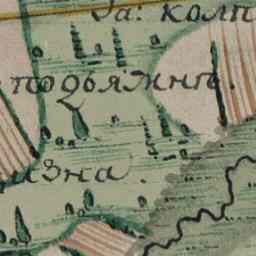 За: колп
подьяжнъ.
изна.